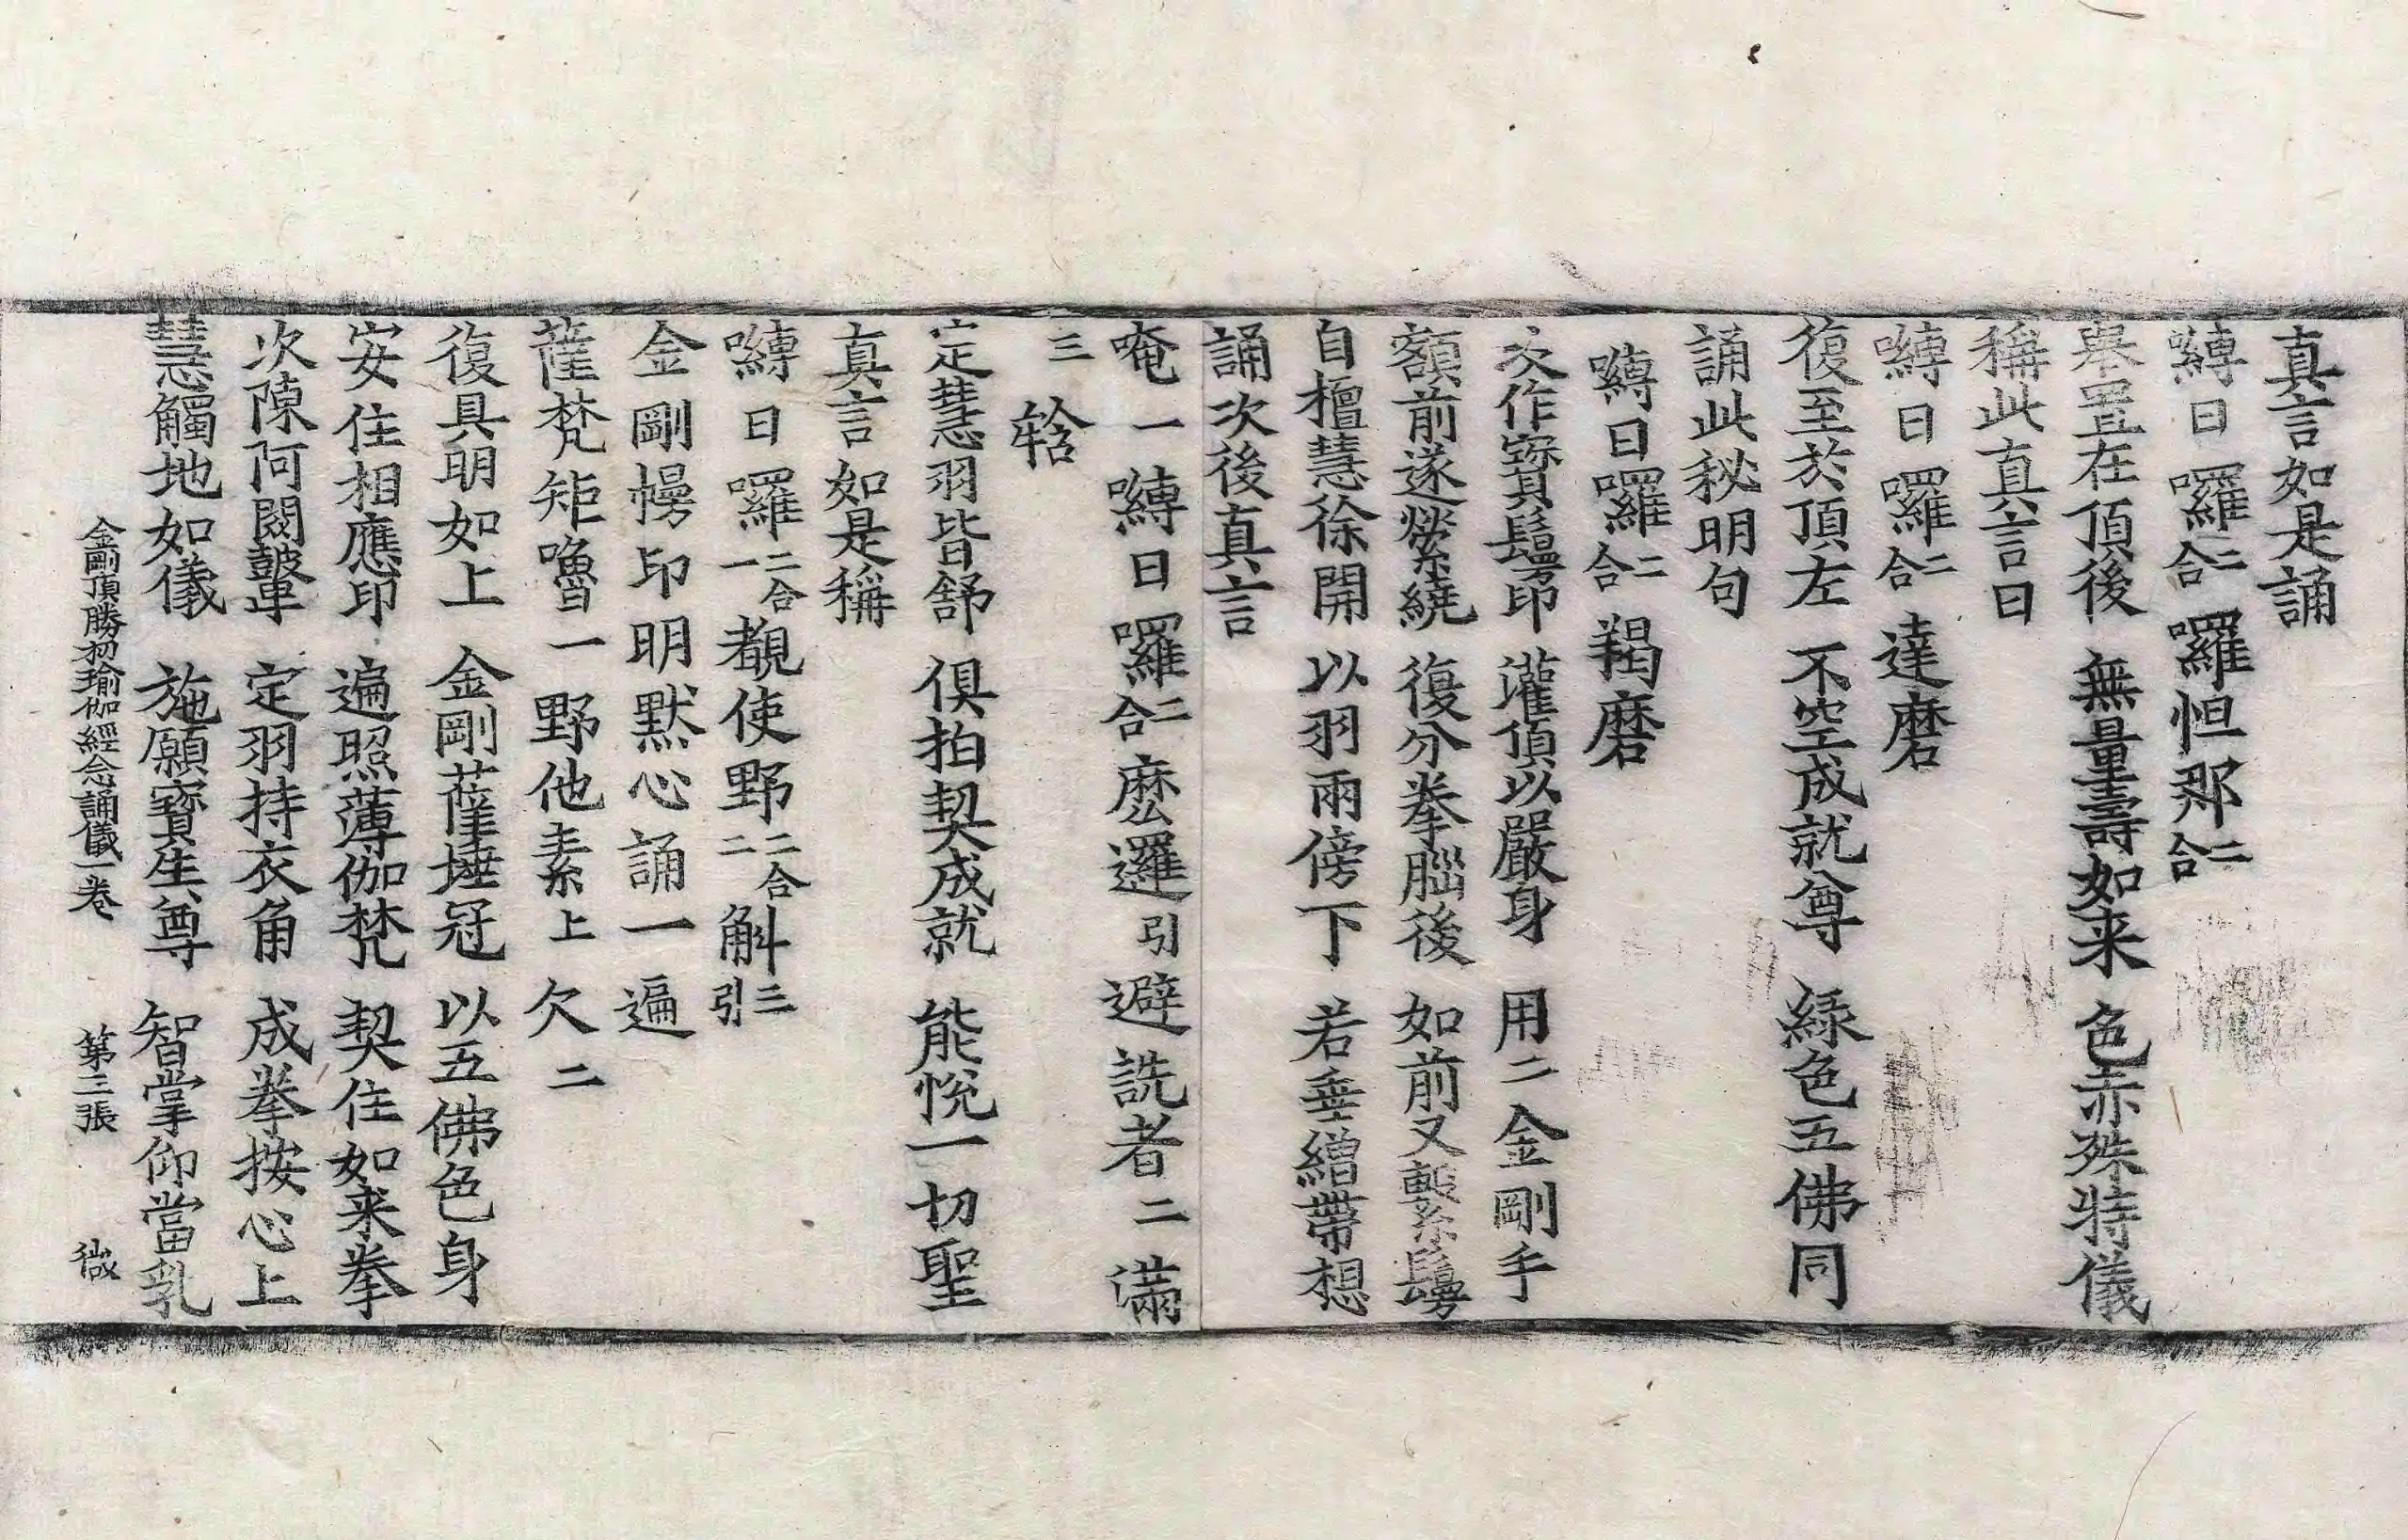 真言如是誦
嚩日囉二合囉怛那二合
舉置在頂後 無量壽如来 色赤殊特儀
稱此真言曰
嚩日囉二合達磨
復至於頂左 不空成就尊 緑色五佛同
誦此秘明句
嚩日囉二合羯磨
次作寳鬘印 灌頂以嚴身 用二金剛手
額前遂縈繞 復分拳腦後 如前又繫鬘
自檀慧徐開 以羽兩傍下 若垂繒帶想
誦次後真言
唵一嚩日囉二合麽邏引避詵者二滿
三𤙖
定慧羽皆舒 俱拍契成就 能悅一切聖
真言如是稱
嚩日囉二合一覩使野二合二斛引三
金剛幔印明默心誦一遍
薩梵矩嚕一野他素上欠二
復具明如上 金剛薩埵冠 以五佛色身
安住相應印 遍照薄伽梵 契住如来拳
次陳阿閦鞞 定羽持衣角 成拳按心上
慧觸地如儀 施願寳生尊 智掌仰當乳
金剛頂勝初瑜伽經念誦儀一卷 第三張 㣲